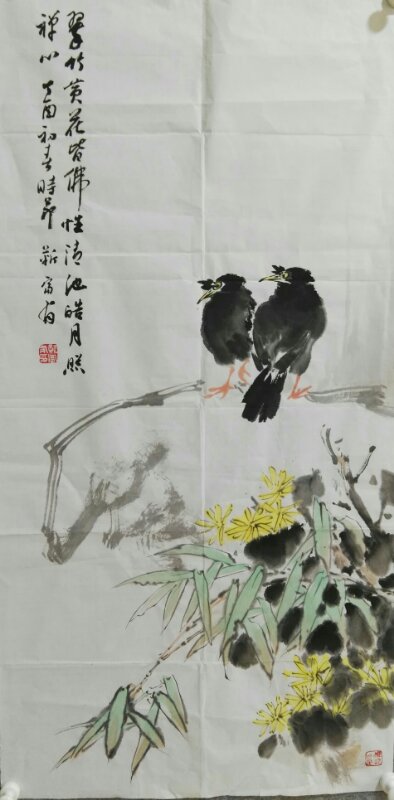 翠竹黄花皆佛性清池皓月照
禅心 丁酉初春時節 靳富有